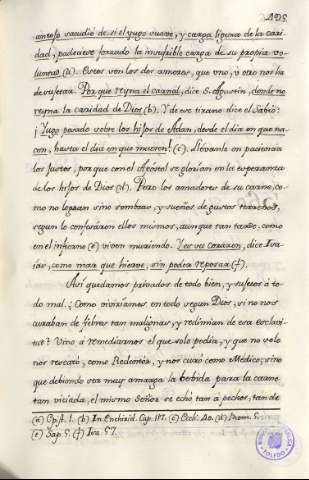 405.
amoroso sacudió de si el yugo suave, y carga ligera de la cari-
dad, padeciese forzado la insufrible carga de su propia vo-
luntad (a). Estos son los dos amores, que uno, ù otro nos ha
de sujetar. Porque reyna el carnal, dice S. Agustin, donde no
reyna la caridad de Dios (b). Y de ese tirano dice el Sabio:
¡Yugo pesado sobre los hijos de Adan, desde el dia en que na-
cen, hasta el dia en que mueren! (c). Llévanle en paciencia
los justos, porque con el Apóstol se glorían en la esperanza
de los hijos de Dios (d). Pero los amadores de su carne, co-
mo no logran sino sombras, y sueños de gustos
segun le confesáron ellos mismos, aunque tan tarde, como
en el infierno (e) viven muriendo. Les es corazon, dice Isa-
ías, como mar que hierve, sin poder reposar (f).
Así quedamos privados de todo bien, y sujetos á to-
do mal. ¿Como viviríamos en todo segun Dios, si no nos
curaban de fiebres tan malignas, y redimian de esa esclavi-
tud? Vino á remediarnos el que solo podia, y que no solo
nos rescató, como Redentor, y nos curó como Médico; sino
que debiendo ser muy amarga la bebida para la carne
tan viciada, el mismo Señor se echó tan á pechos, tan de
(a) Ep. (b) In Enchirid. Cap. 117. (c) Eccli. 40. (d) Rom. 5.
(e) Sap. 5. (f) Isa. 57.
TOLEDO